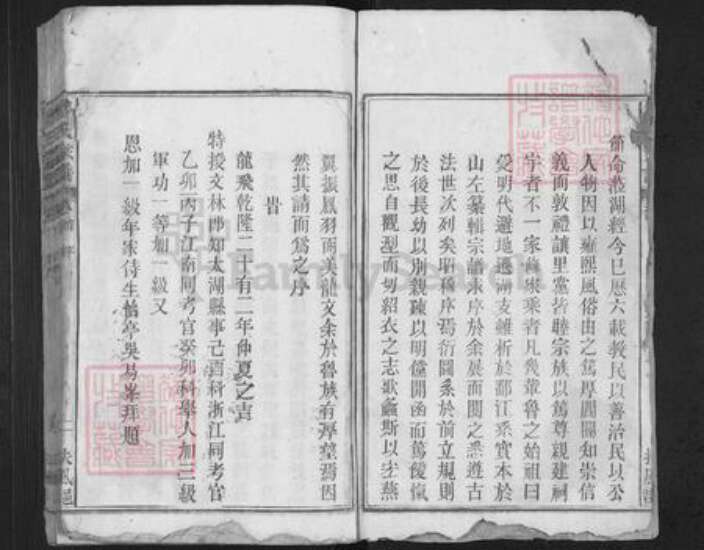 節命蒞湖經今已歷六載教民以善治民以公
人物因以雍熙風俗由之篤厚閭閻知崇信
義而敦禮讓里黨皆睦宗族以篤尊親建祠
宇者不一家修宗乘者凡幾輩魯之始祖曰
受明代避地遷湖支離析於鄱江乘實本於
山左纂輯宗譜求序於余展而閱之悉遵古
法世次列矣昭穆序焉衍圖系於前立規則
於後長幼以別親疎以明儘開函而篤
之思自觀型而切紹衣之志歌螽斯以
翼振鳳羽而美龍文余於魯族有厚望焉因
然其請而為之序
旹
龍飛乾隆二十有二年仲夏之吉
特授文林郎知太湖縣事己酉科浙江同考官
乙卯丙子江南同考官癸卯科舉人加三級
軍功一等加一級又
恩加一級年家侍生 亭吳易峯拜題
扶風邑
FamilySearch